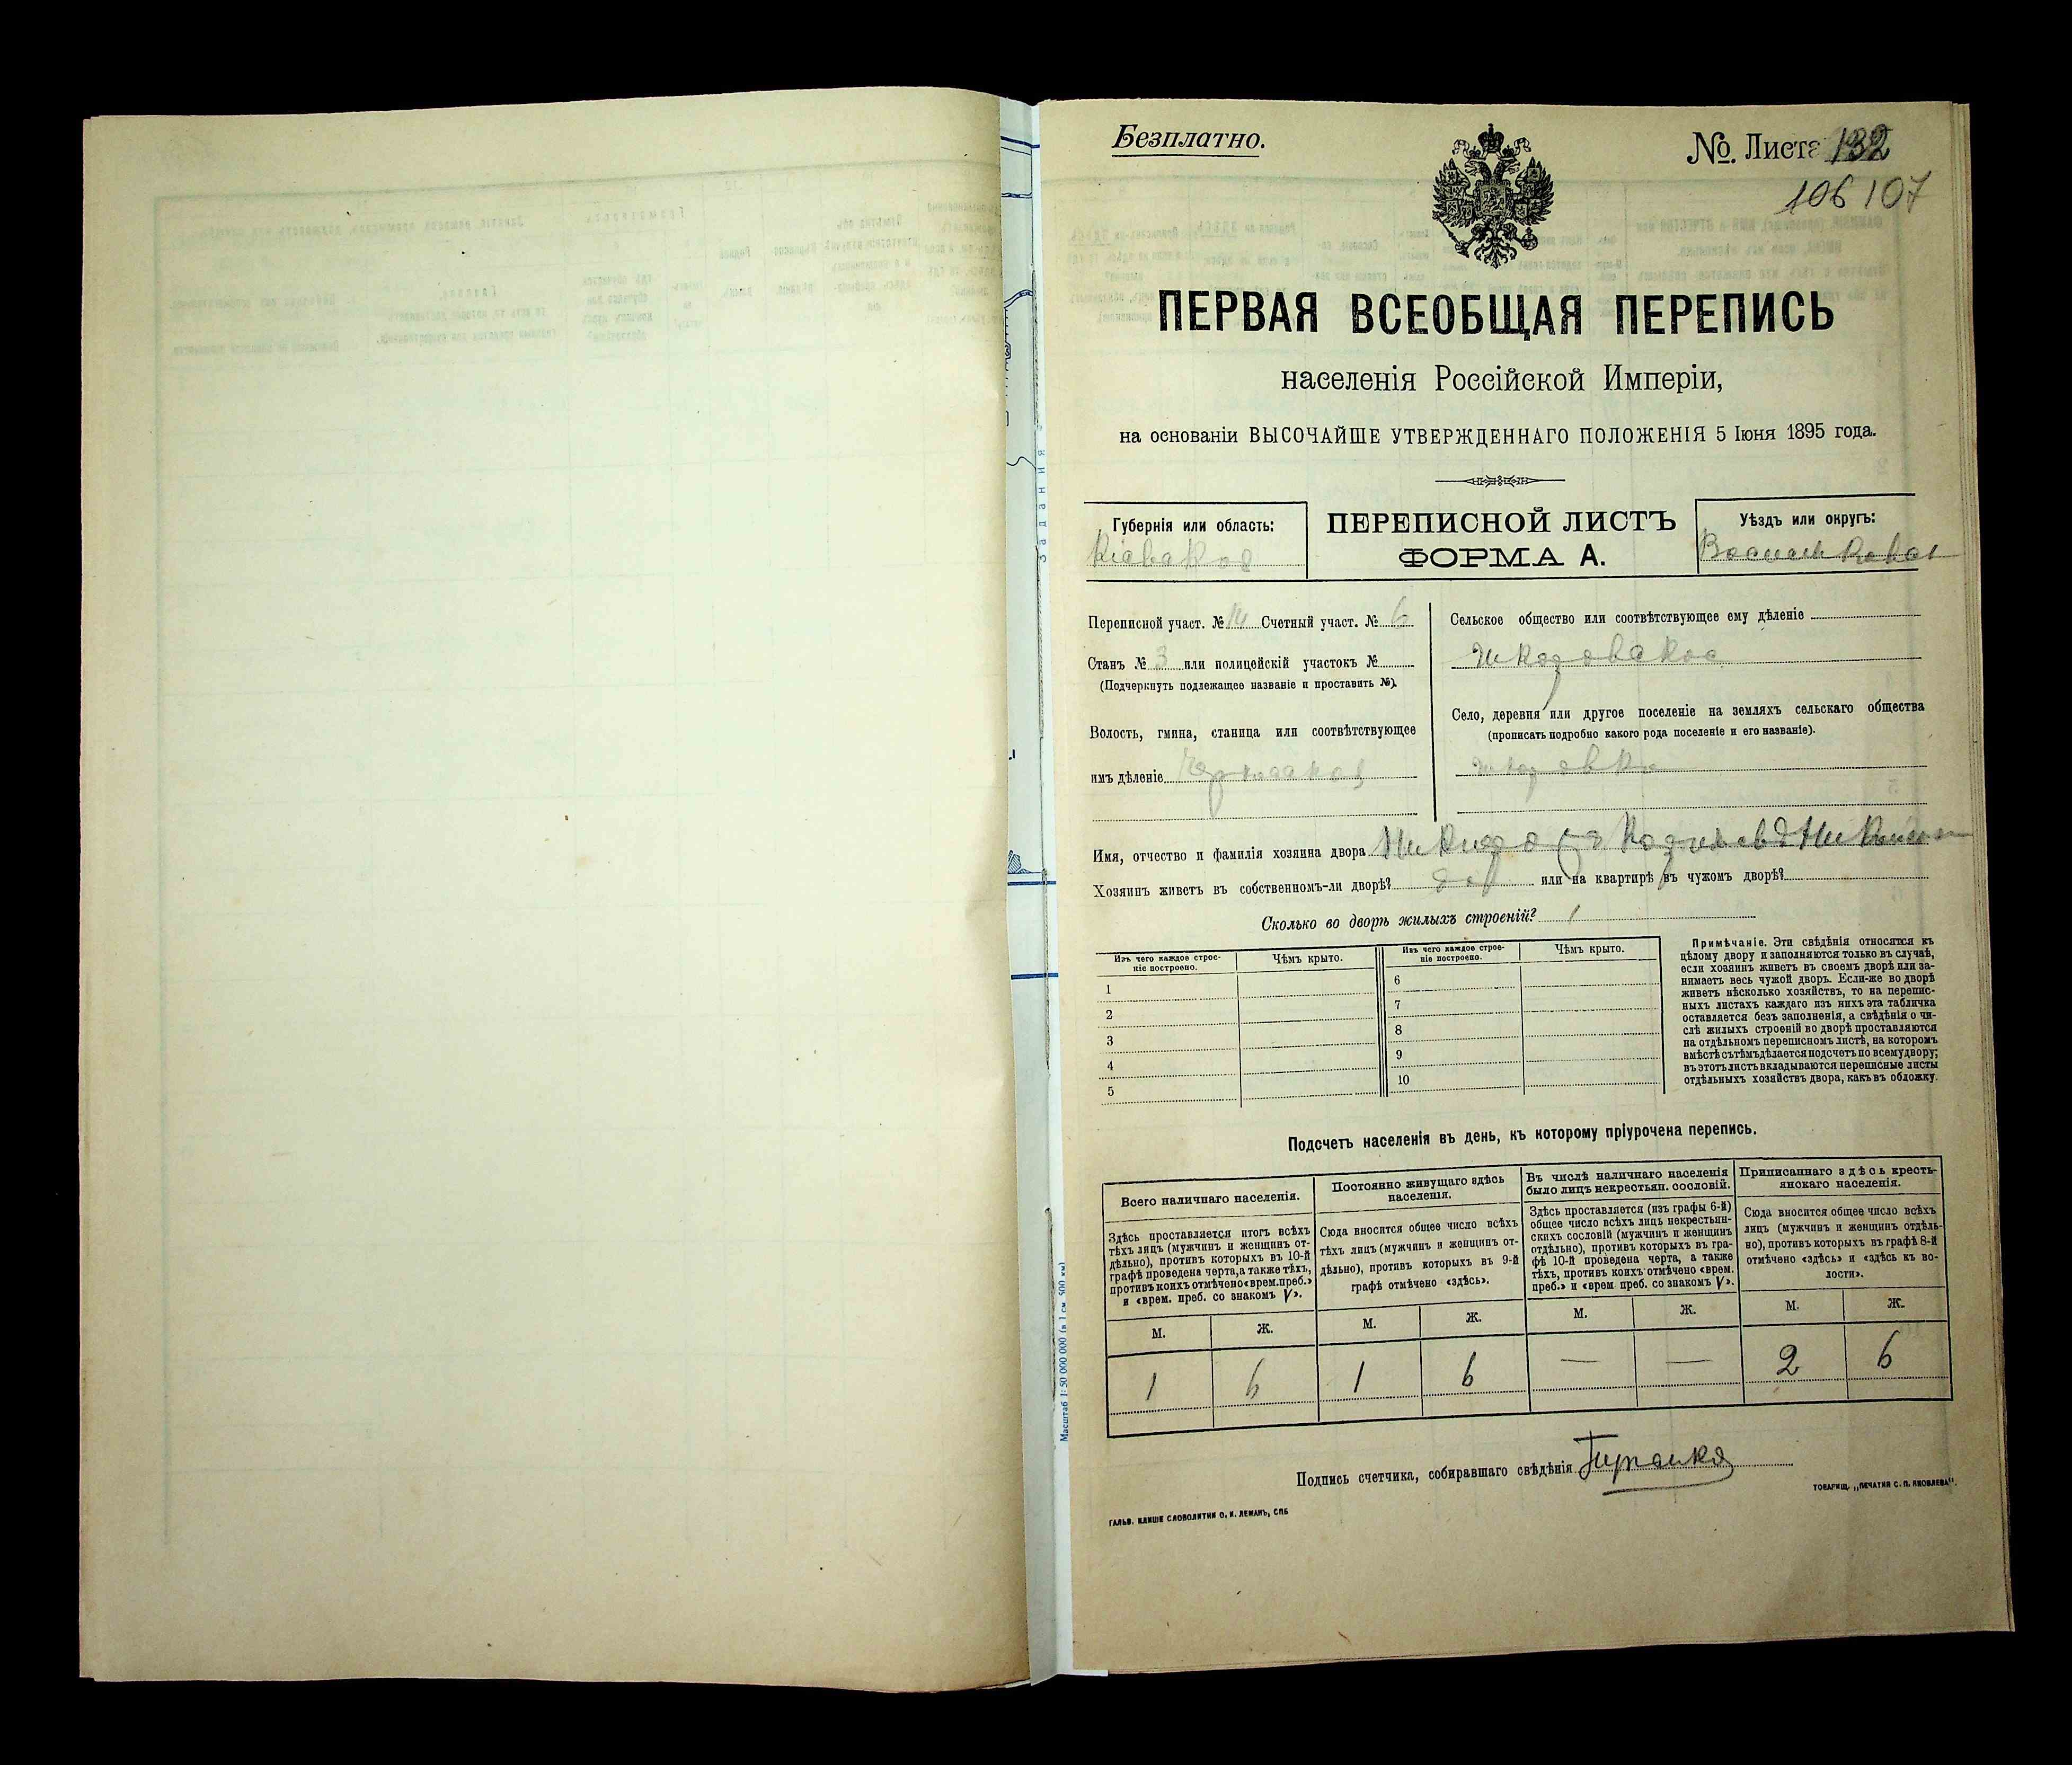 Безплатно.
№. Листа 132
106 107
ПЕРВАЯ ВСЕОБЩАЯ ПЕРЕПИСЬ
населенія Россійской Имперіи,
на основаніи ВЫСОЧАЙШЕ УТВЕРЖДЕННАГО ПОЛОЖЕНІЯ 5 Іюня 1895 года.
Губернія или область:
Кіевская
ПЕРЕПИСНОЙ ЛИСТЪ
ФОРМА А.
Уѣздъ или округъ:
Васильковск
Переписной участ. № 14 Счетный участ. № 6
Станъ № 3 или полицейскій участокъ №
(Подчеркнуть подлежащее названіе и проставить №).
Волость, гмина, станица или соотвѣтствующее
имъ дѣленіе
Сельское общество или соотвѣтствующее ему дѣленіе
Шкаровское
Село, деревня или другое поселеніе на земляхъ сельскаго общества
(прописать подробно какого рода поселеніе и его названіе).
Шкаровка
Имя, отчество и фамилія хозяина двора
Хозяинъ живетъ въ собственномъ-ли дворѣ? или на квартирѣ въ чужомъ дворѣ?
Сколько во дворѣ жилыхъ строеній? 1
Изъ чего каждое строе-
ніе построено.
Чѣмъ крыто.
Изъ чего каждое строе-
ніе построено.
Чѣмъ крыто.
1
2
3
4
5
6
7
8
9
10
Примѣчаніе. Эти свѣдѣнія относятся къ
цѣлому двору и заполняются только въ случаѣ,
если хозяинъ живетъ въ своемъ дворѣ или за-
нимаетъ весь чужой дворъ. Если-же во дворѣ
живетъ нѣсколько хозяйствъ, то на перепис-
ныхъ листахъ каждаго изъ нихъ эта табличка
оставляется безъ заполненія, а свѣдѣнія о чи-
слѣ жилыхъ строеній во дворѣ проставляются
на отдѣльномъ переписномъ листѣ, на которомъ
вмѣстѣ съ тѣмъ дѣлается подсчетъ по всему двору;
въ этотъ листъ вкладываются переписные листы
отдѣльныхъ хозяйствъ двора, какъ въ обложку.
Подсчетъ населенія въ день, къ которому пріурочена перепись.
Всего наличнаго населенія.
Здѣсь проставляется итогъ всѣхъ
тѣхъ лицъ (мужчинъ и женщинъ от-
дѣльно), противъ которыхъ въ 10-й
графѣ проведена черта, а также тѣхъ,
противъ коихъ отмѣчено «врем. преб.»
и «врем. преб. со знакомъ V».
Постоянно живущаго здѣсь
населенія.
Сюда вносится общее число всѣхъ
тѣхъ лицъ (мужчинъ и женщинъ от-
дѣльно), противъ которыхъ въ 9-й
графѣ отмѣчено «здѣсь».
Въ числѣ наличнаго населенія
было лицъ некрестьян. сословій.
Здѣсь проставляется (изъ графы 6-й)
общее число всѣхъ лицъ некрестьян-
скихъ сословій (мужчинъ и женщинъ
отдѣльно), противъ которыхъ въ гра-
фѣ 10-й проведена черта, а также
тѣхъ, противъ коихъ отмѣчено «врем.
преб.» и «врем преб. со знакомъ V».
Приписаннаго здѣсь кресть-
янскаго населенія.
Сюда вносится общее число всѣхъ
лицъ (мужчинъ и женщинъ отдѣль-
но), противъ которыхъ въ графѣ 8-й
отмѣчено «здѣсь» и «здѣсь къ во-
лости».
М. Ж. М. Ж. М. Ж. М. Ж.
1 6 1 6 — — 2 6
Подпись счетчика, собиравшаго свѣдѣнія
ГАЛЬВ. КЛИШЕ СЛОВОЛИТНИ О. И. ЛЕМАНЪ, СПБ
ТОВАРИЩ. „ПЕЧАТНИ С. П. ЯКОВЛЕВА".
Задания
Масштаб 1:50 000 000 (в 1 см 500 км)